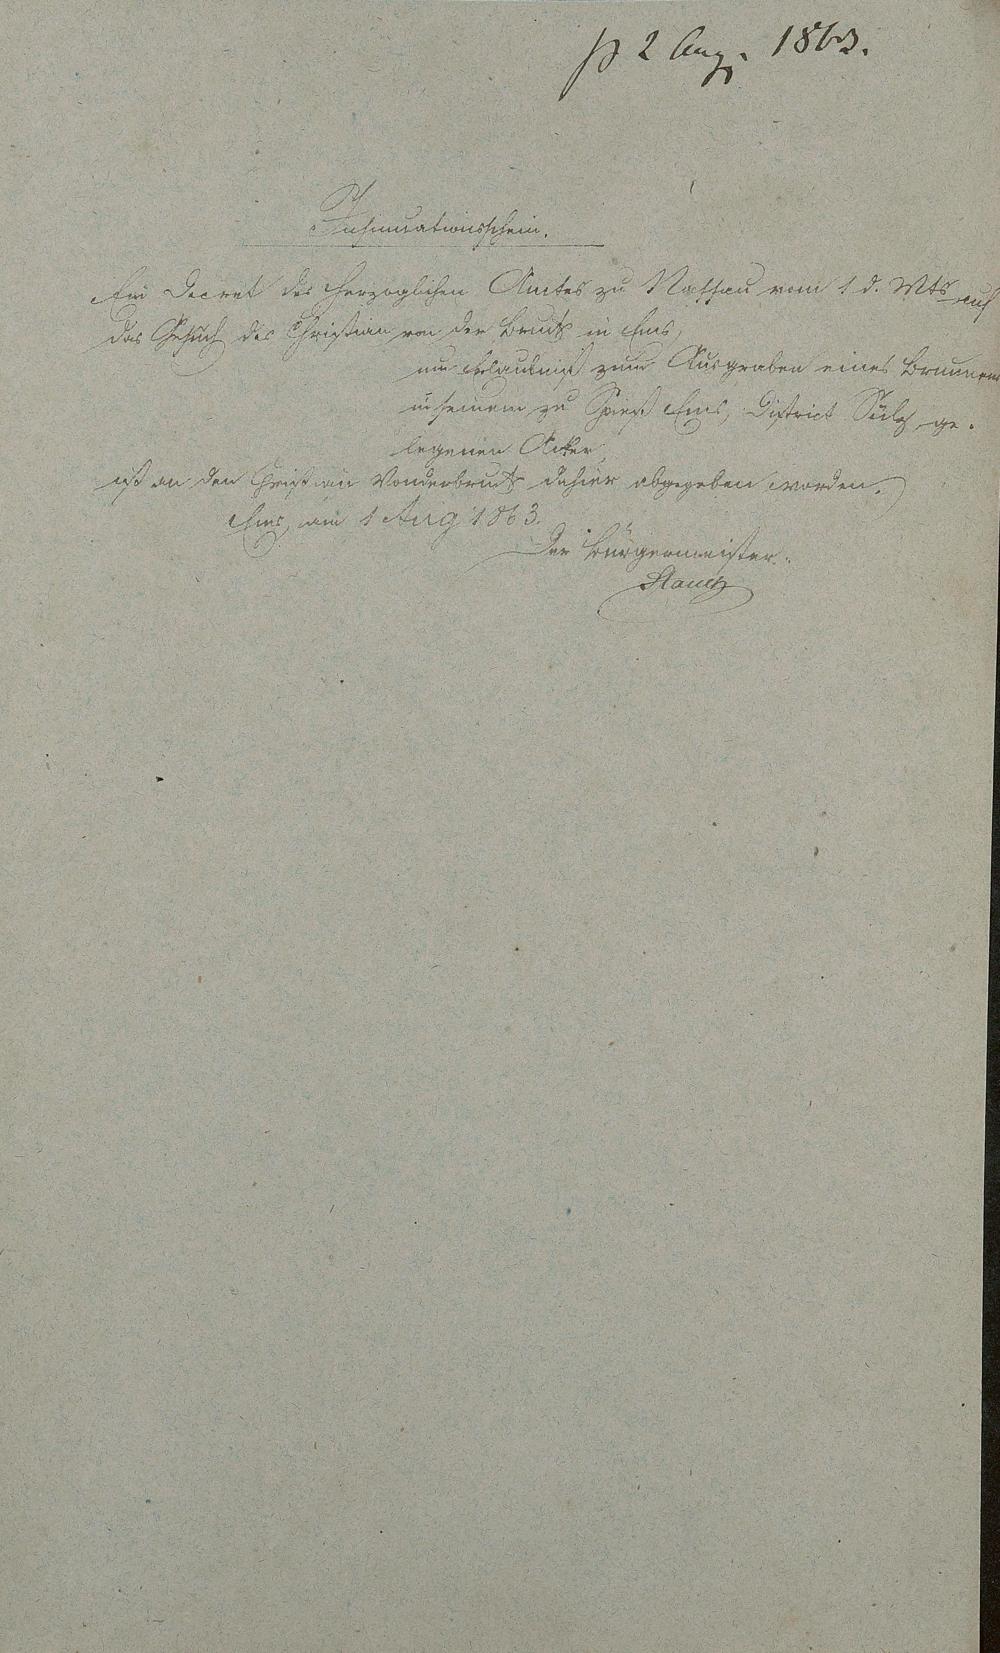 2 Aug. 1863.
Insinuationsschein.
Ein Decret des Herzoglichen Amtes zu Nassau vom 1 d. Mts auf
das Gesuch des Christian von der Bruck in Ems,
um Erlaubniß zum Ausgraben eines Brunnens
in seinem zu Spieß Ems, District Sülz ge-
legenen Acker,
ist an den Christian Vonderbruck dahier abgegeben worden.
Ems, am 1 Aug 1863.
Der Bürgermeister.